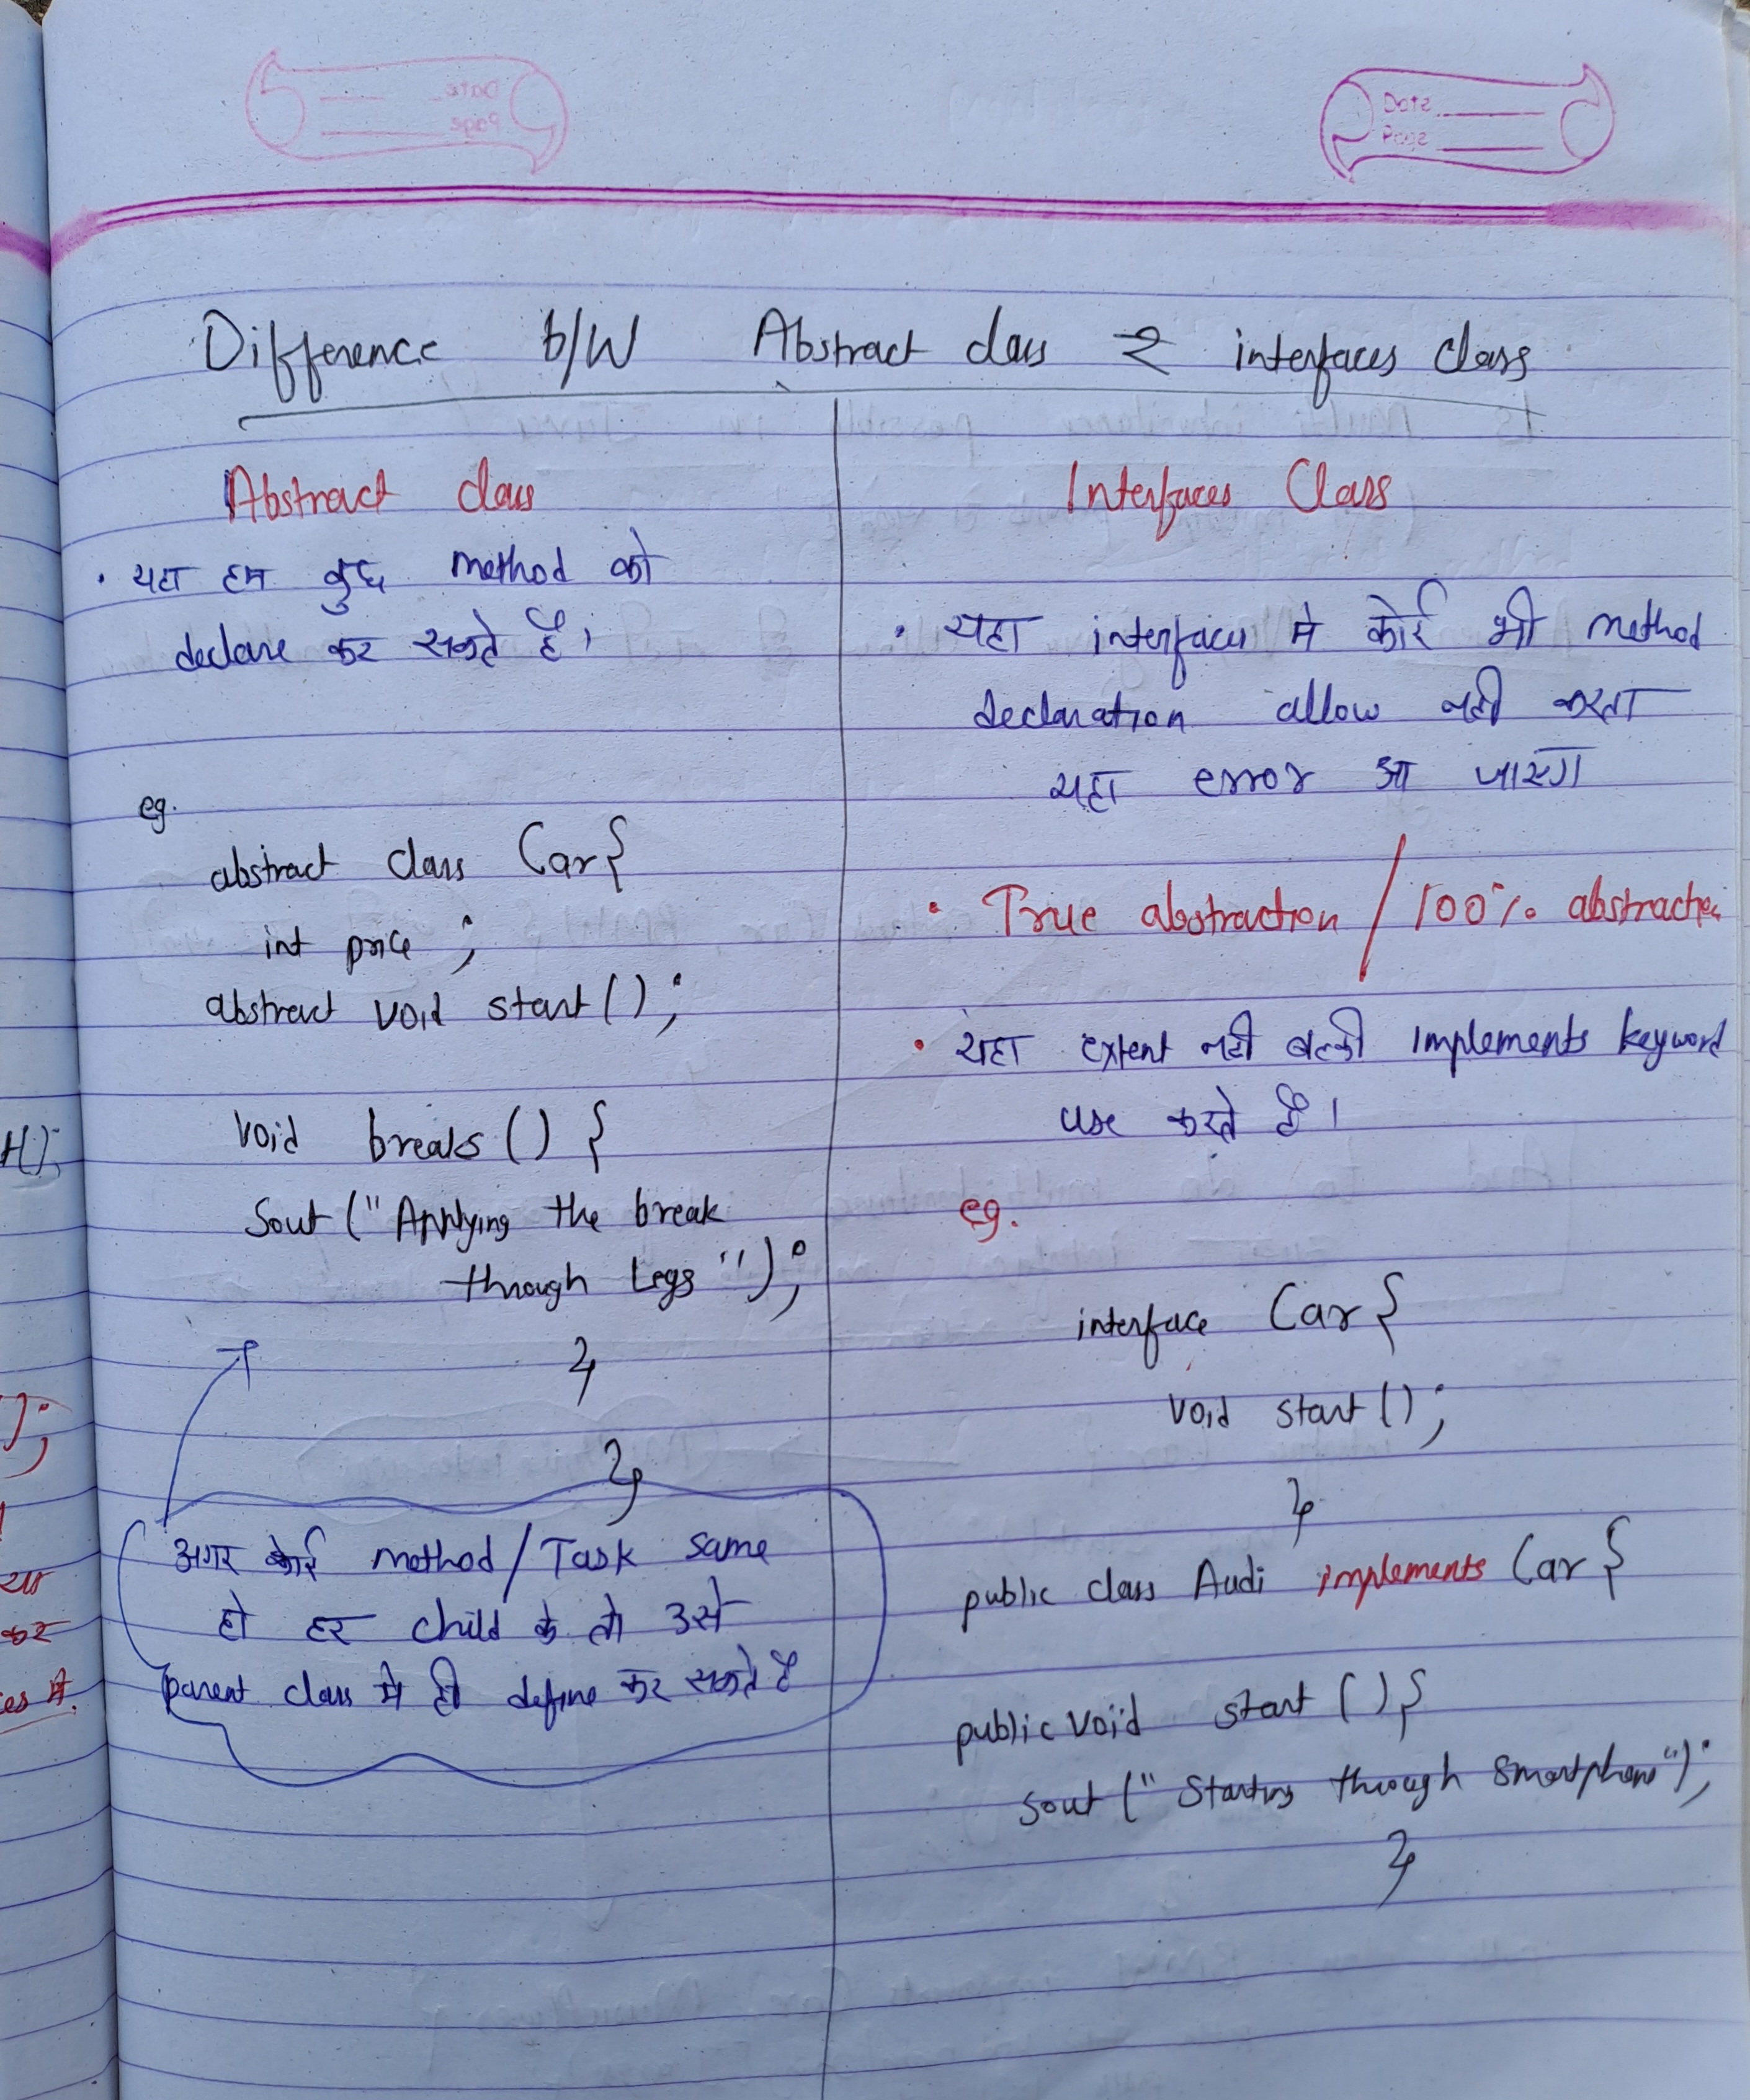 Date
Page
Difference b/w Abstract class & interfaces class
Abstract class
• यहा हम कुछ method को
declare कर सकते है।
eg.
abstract class Car{
int price ;
abstract void start();
void breaks () {
Sout ("Applying the break
through Legs");
}
}
अगर कोई method/Task same
हो हर child के तो उसे
parent class मे ही define कर सकते है
Interfaces Class
• यहा interfaces मे कोई भी method
declaration allow नही करता
यहा error आ जाएगा
• True abstraction / 100% abstraction
• यहा extent नही बल्की implements keyword
use करते है।
eg.
interface Car {
void start();
}
public class Audi implements Car {
public void start () {
sout ("Starting through Smartphone");
}